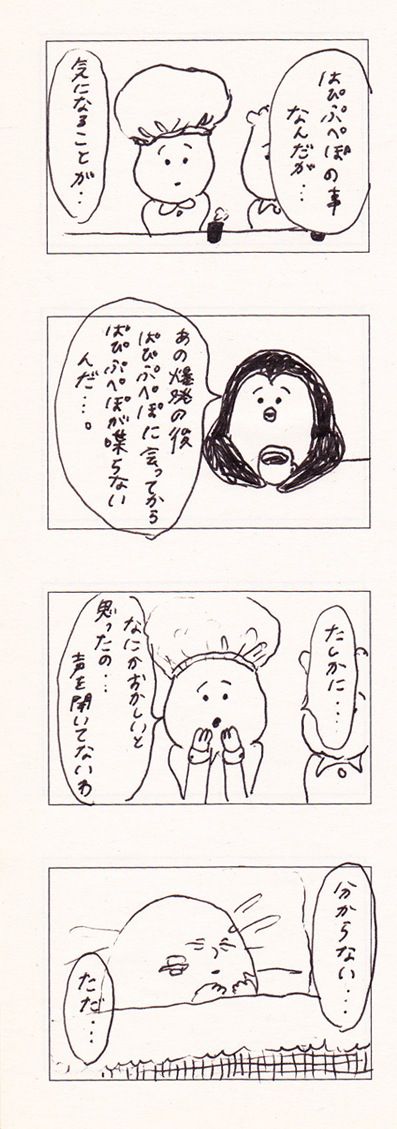 ぱぴぷぺぽの事
なんだが…
気になることが…
あの爆発の後
ぱぴぷぺぽに会ってから
ぱぴぷぺぽが喋らない
んだ…。
たしかに…
なにかおかしいと
思ったの…
声を聞いてないわ
分からない…
ただ…